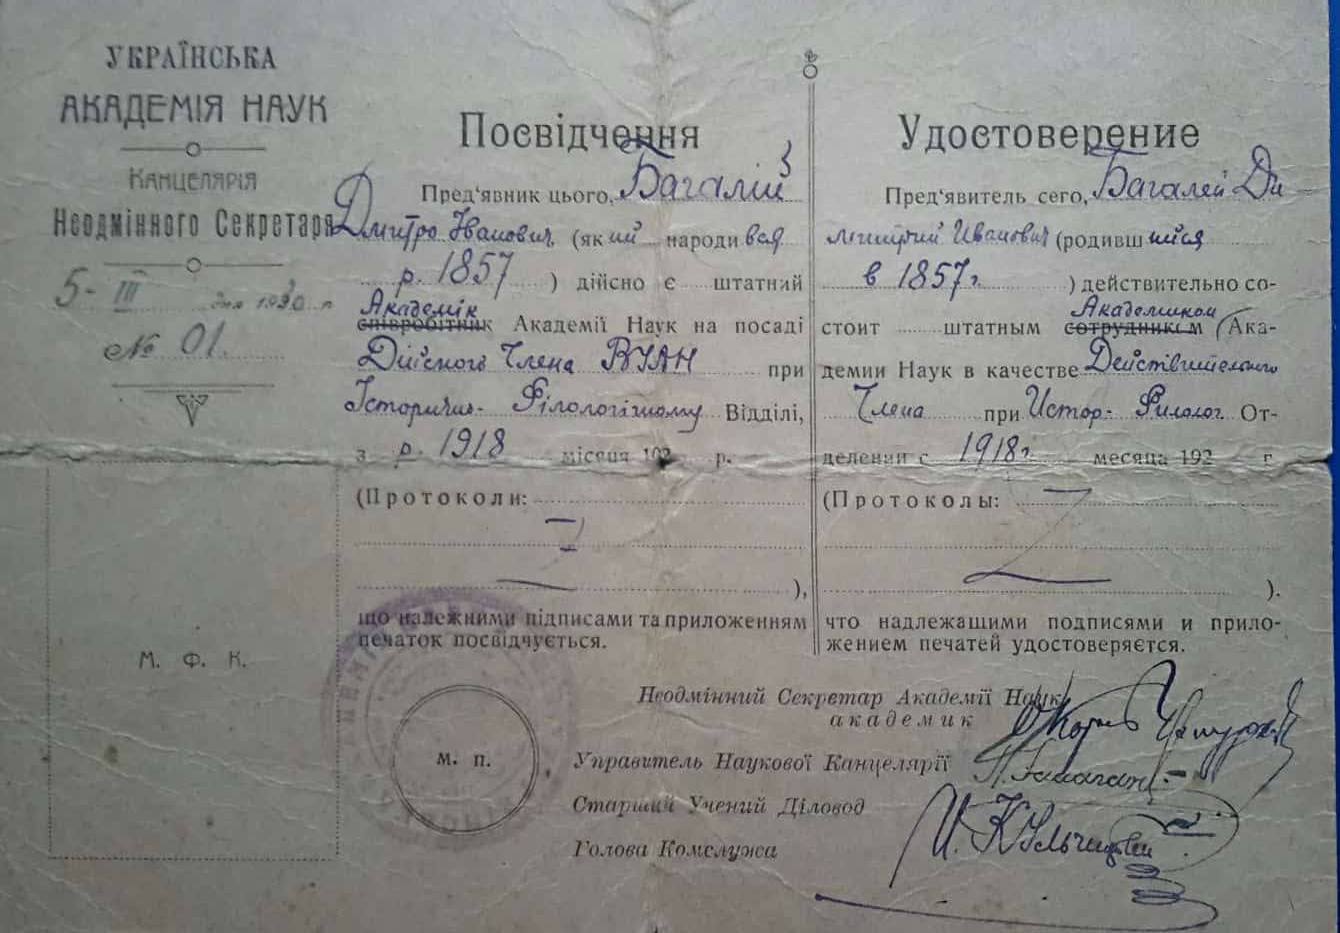 УКРАЇНСЬКА
АКАДЕМІЯ НАУК
КАНЦЕЛЯРІЯ
Неодмінного Секретаря
5-III дня 1930 р
№ 01.
М. Ф. К.
Посвідчення
Пред'явник цього, Багалій
Дмитро Іванович (який народився
р. 1857 ) дійсно є штатний
Академік
співробітник Академії Наук на посаді
Дійсного Члена ВУАН при
Історично-Філологічному Відділі,
з р. 1918 місяця 192 р.
(Протоколи:
),
що належними підписами та приложенням
печаток посвідчується.
Удостоверение
Пред'явитель сего, Багалей Ди
митрий Иванович (родившийся
в 1857 г ) действительно со-
Академиком
стоит штатным сотрудником (Ака-
демии Наук в качестве Действительного
Члена при Истор-Филолог. От-
делении с 1918 г. месяца 192 г
(Протоколы:
).
что надлежащими подписями и прило-
жением печатей удостоверяєтся.
М. П.
Неодмінний Секретар Академії Наук
академик
Управитель Наукової Канцелярії
Старший Учений Діловод
Голова Комслужа
И. Кульчицкий